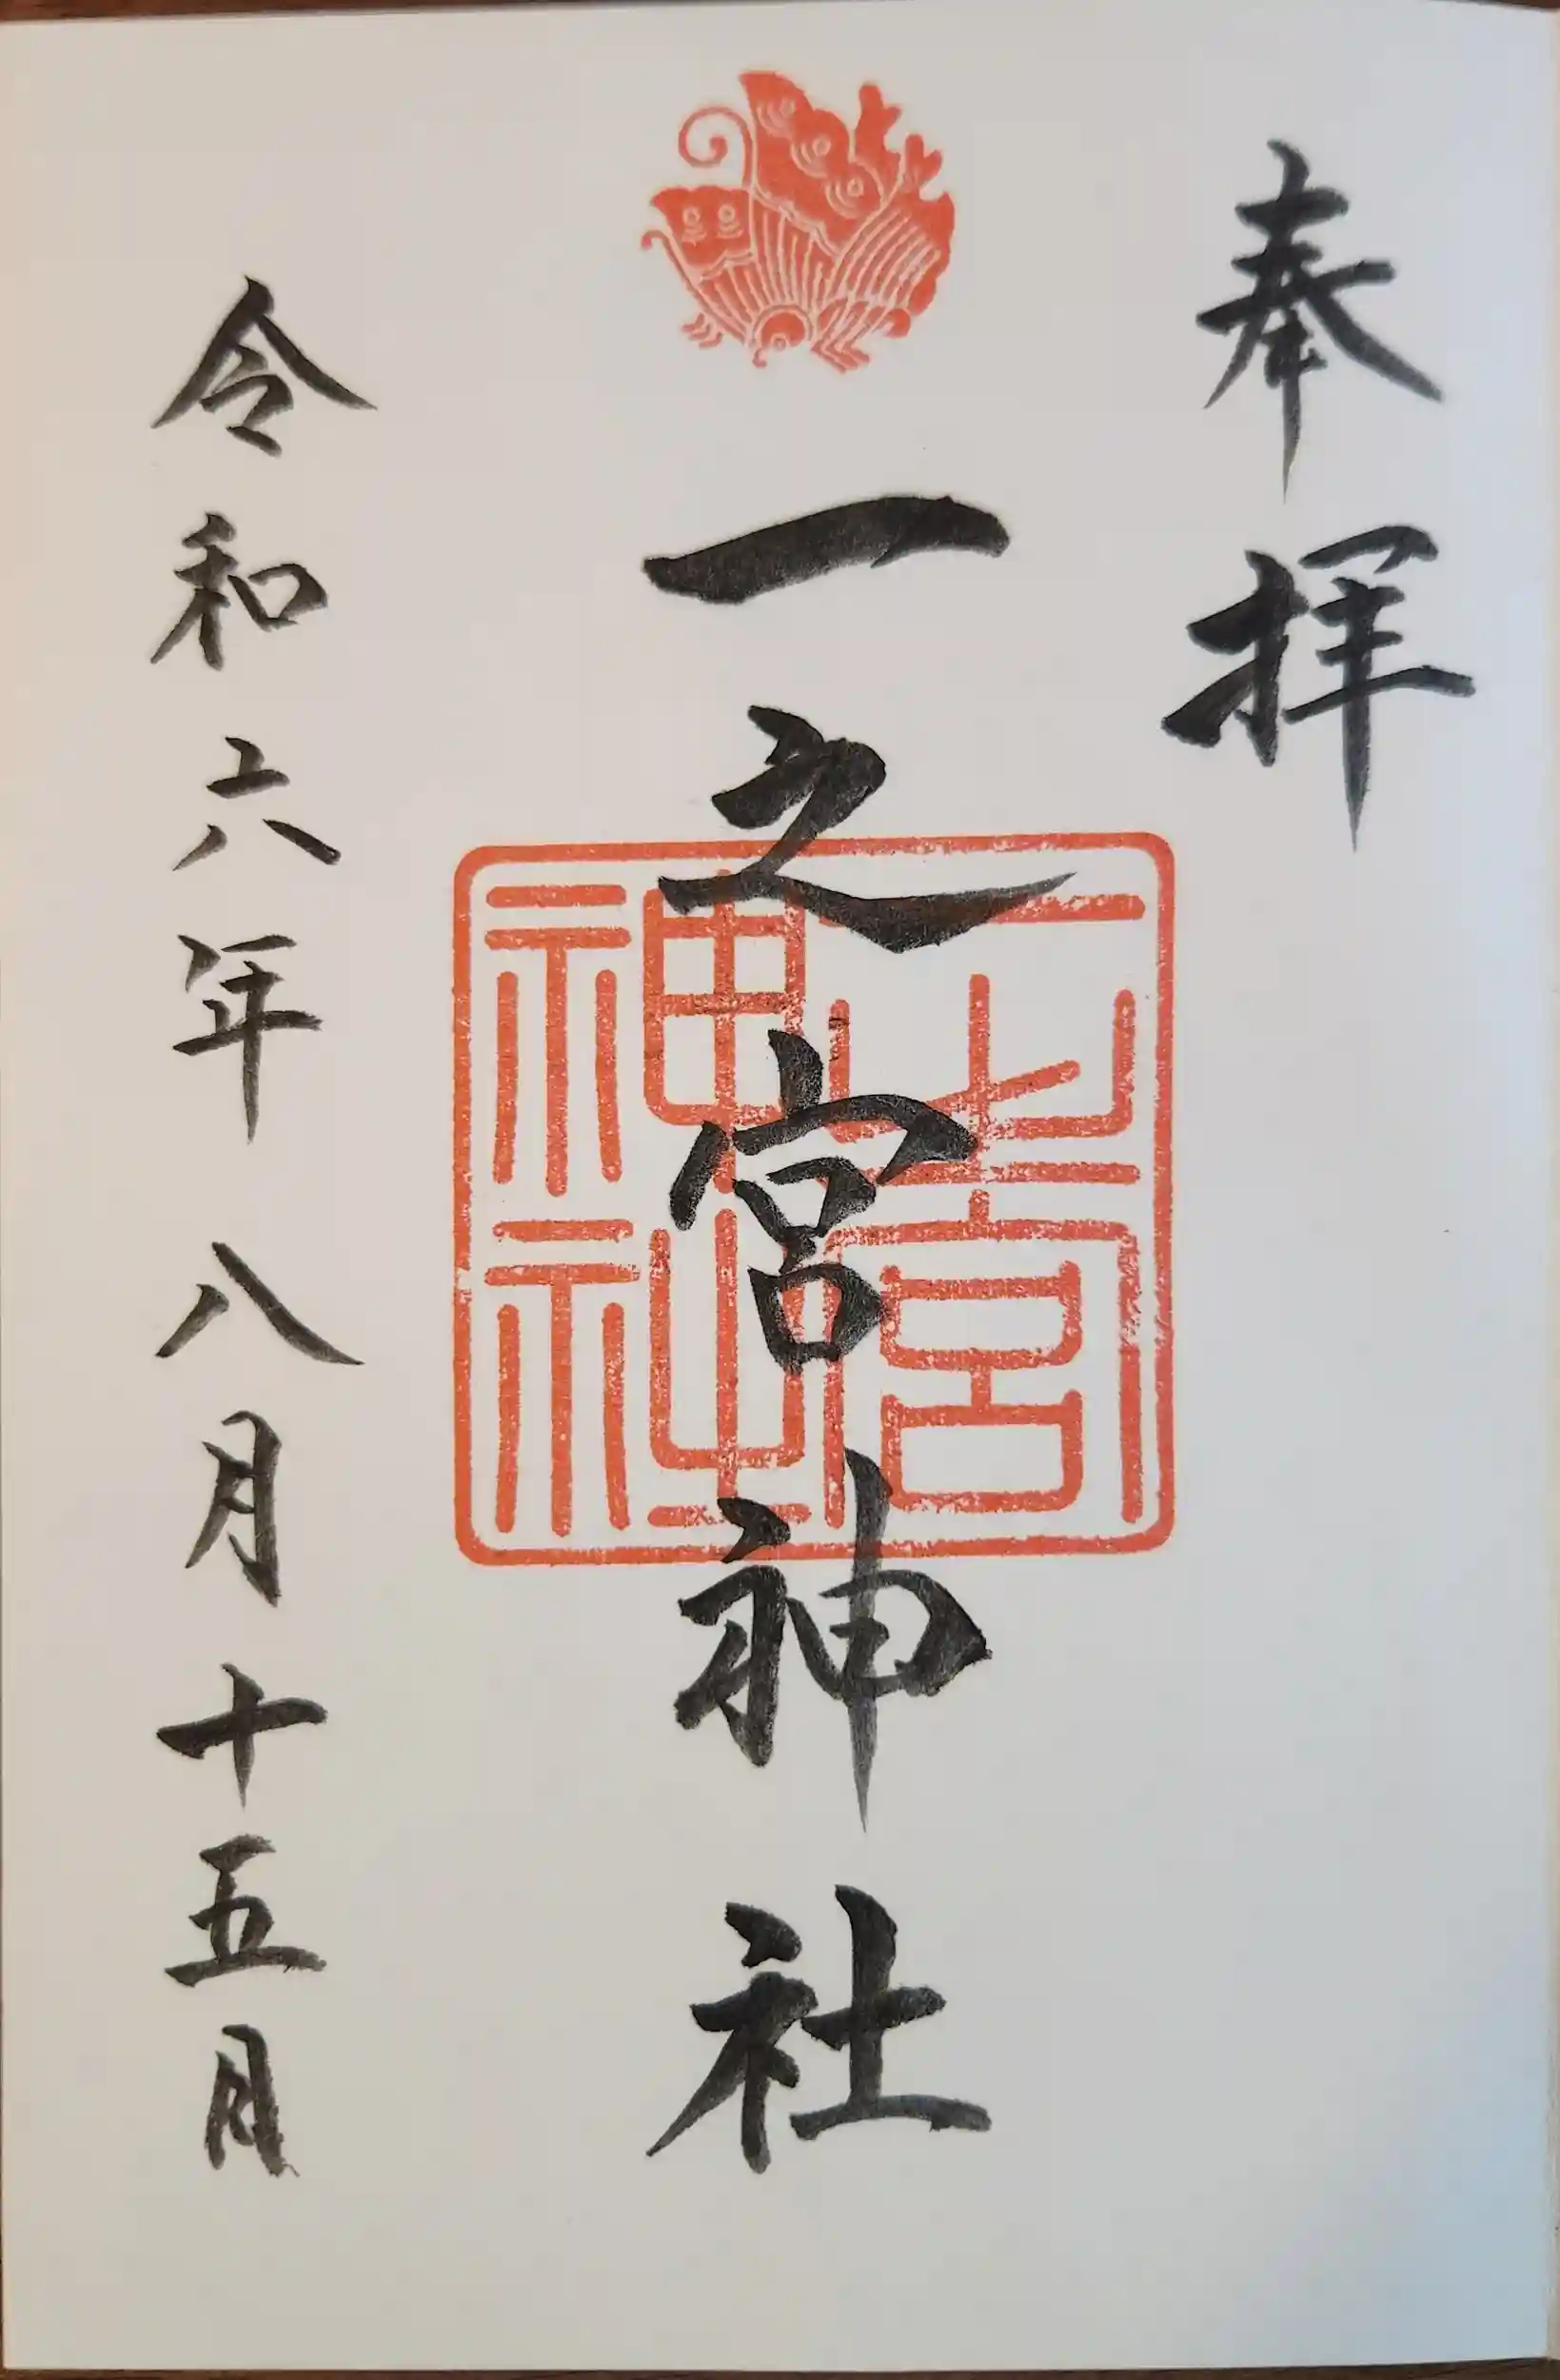 奉拝
一之宮神社
一之宮神社
令和六年八月十五日